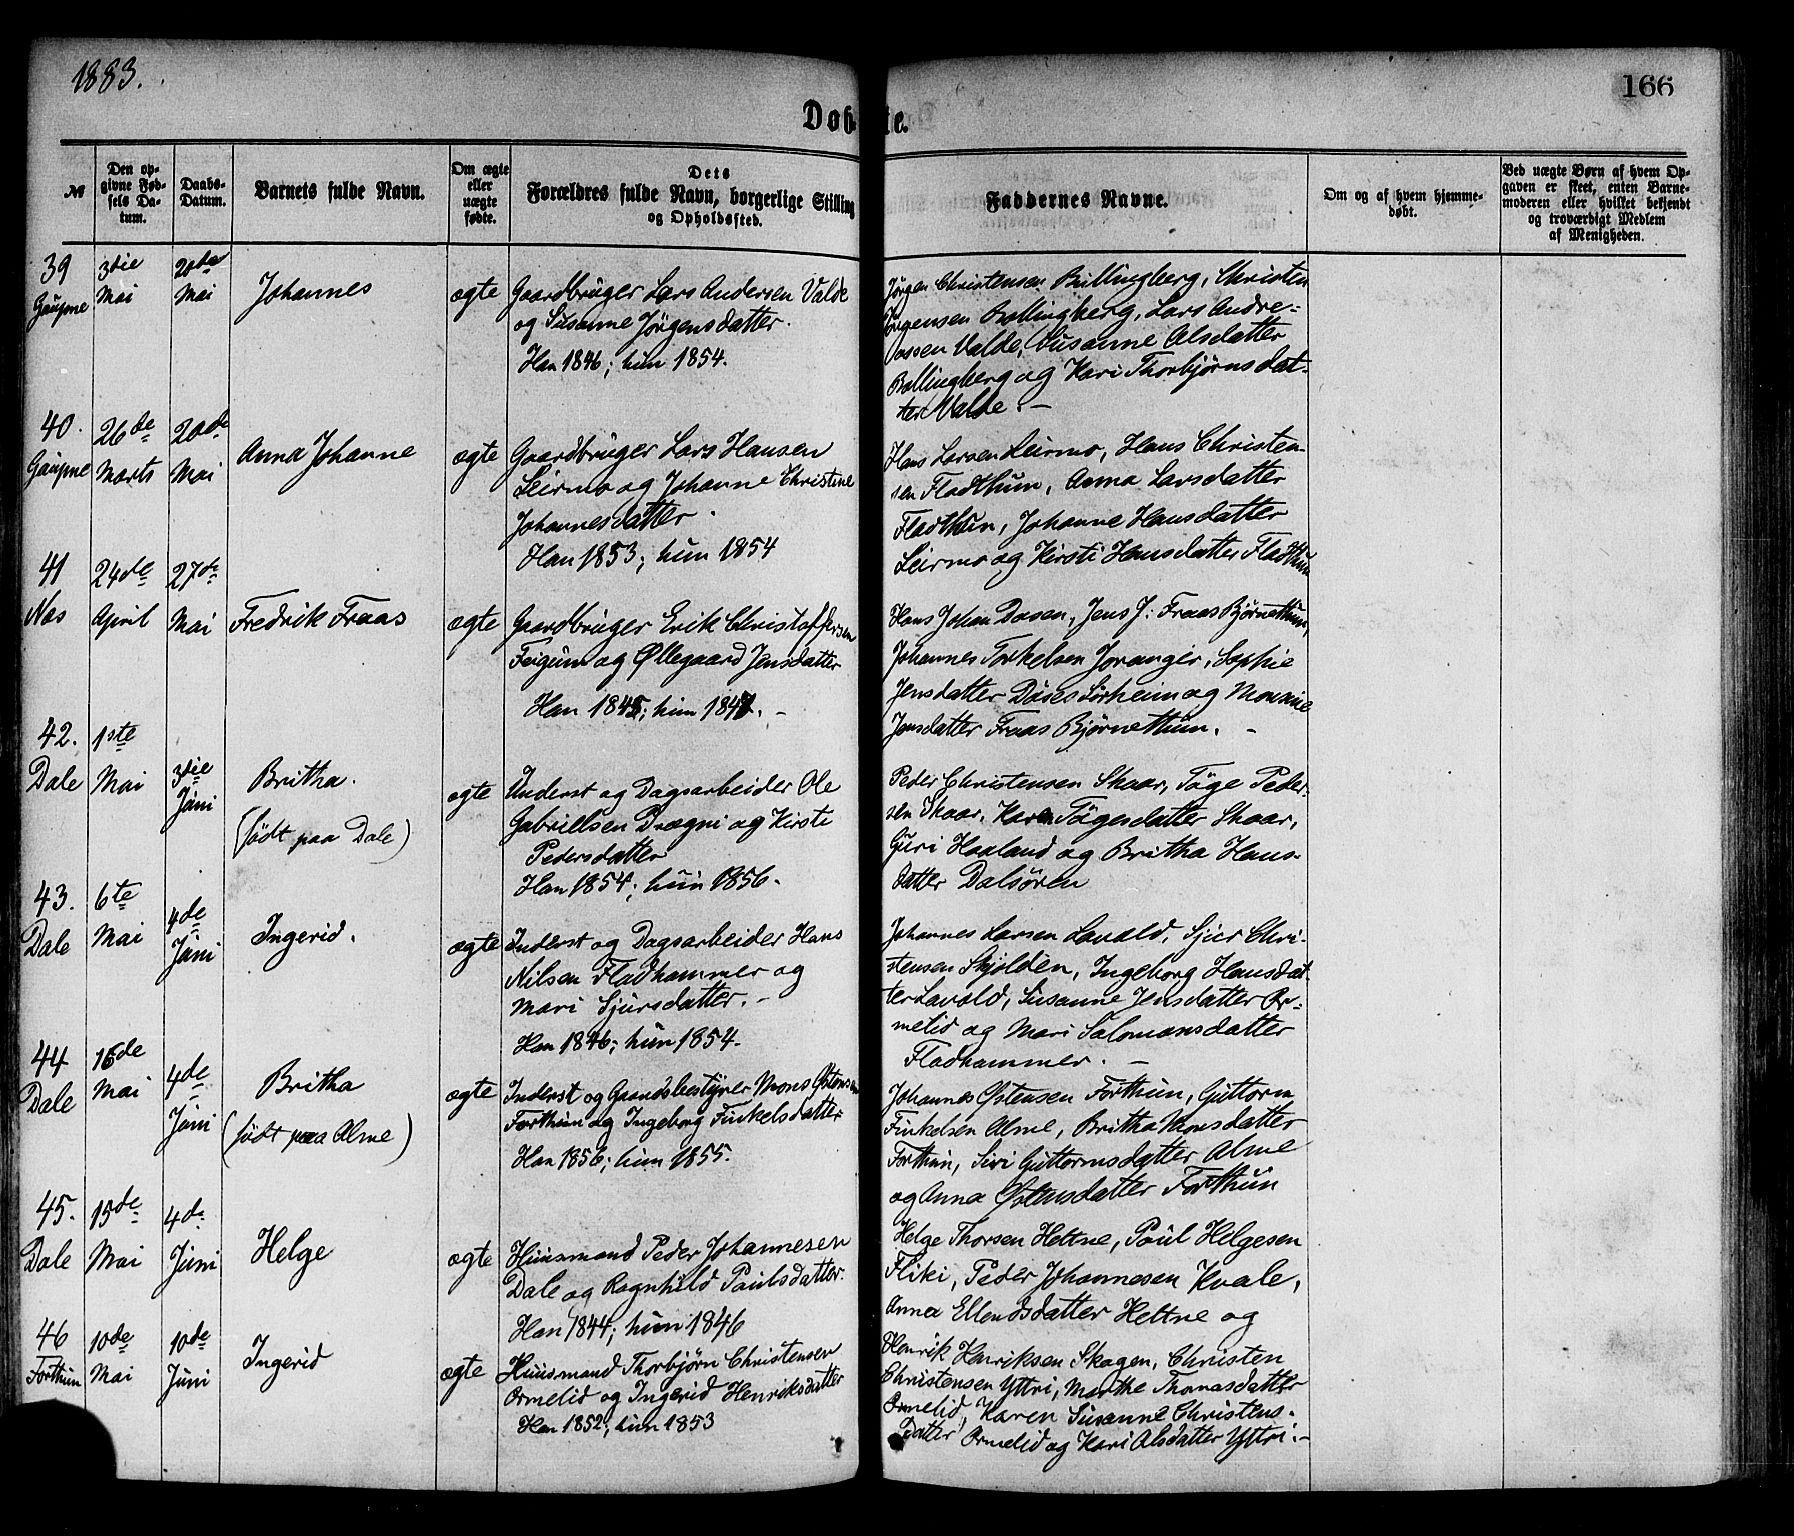 1883.
166
Døbte.
№
Den op-
givne Fød-
sels Da-
tum.
Daabs-
Datum.
Barnets fulde Navn.
Om ægte
eller
uægte
fødte.
Dets
Forældres fulde Navn, borgerlige Stilling
og Opholdssted.
Faddernes Navne.
Om og af hvem hjemme-
døbt.
Ved uægte Børn af hvem Op-
gaven er skeet, enten Barne-
moderen eller hvilket bekjendt
og troværdigt Medlem
af Menigheden.
39
Gaupne
3die
Mai
20de
Mai
Johannes
ægte
Gaardbruger Lars Andersen Valde
og Susanne Jörgensdatter.
Han 1846; hun 1854.
Jørgen Christensen Bollingberg, Christen
Jørgensen Bollingberg, Lars Andre-
assen Valde, Susanne Olsdatter
Bollingberg og Kari Thorbjørnsdat-
ter Valde. —
40.
Gaupne
26de
Marts
20de
Mai
Anna Johanne
ægte
Gaardbruger Lars Hansen
Leirmo og Johanne Christine
Johannesdatter.
Han 1853; hun 1854
Hans Larsen Leirmo, Hans Christen-
sen Fladthun, Anna Larsdatter
Fladthun, Johanne Hansdatter
Leirmo og Kirsti Hansdatter Fladthun
41
Nes
24de
April
27de
Mai
Fredrik Fraas
ægte
Gaardbruger Erik Christoffersen
Feigum og Øllegaard Jensdatter
Han 1845; hun 1847. —
Hans Johan Dosen, Jens J: Fraas Bjørnethun,
Johannes Torkelsen Joranger, Sophie
Jensdatter Döses Sørheim og Monsine
Jensdatter Fraas Bjørnethun. —
42.
Dale
1ste
Mai
3die
Juni
Britha.
(født paa Dale)
ægte
Inderst og Dagsarbeider Ole
Gabrielsen Drægni og Kirsti
Pedersdatter
Han 1854; hun 1856.
Peder Christensen Skaar, Tøge Peder-
sen Skaar, Karen Tøgesdatter Skaar,
Guri Haaland og Britha Hans-
datter Dalsøren
43.
Dale
6te
Mai
4de
Juni
Ingerid.
ægte
Inderst og Dagsarbeider Hans
Nilsen Fladhammer og
Mari Sjursdatter. —
Han 1846; hun 1854.
Johannes Larsen Lavold, Sjur Chri-
stensen Skjolden, Ingeborg Hansdat-
ter Lavold, Susanne Jensdatter Or-
melid og Mari Salomonsdatter
Fladhammer. —
44
Dale
16de
Mai
4de
Juni
Britha
(født paa Alme)
ægte
Inderst og Gaardsbestyrer Mons Østensen
Forthun og Ingeborg Finkelsdatter
Han 1856; hun 1855.
Johannes Østensen Forthun, Guttorm
Finkelsen Alme, Britha Monsdatter
Forthun, Siri Guttormsdatter Alme
og Anna Østensdatter Forthun
45.
Dale
15de
Mai
4de
Juni
Helge
ægte
Huusmand Peder Johannesen
Dale og Ragnhild Paulsdatter.
Han 1844; hun 1846
Helge Thorsen Hettne, Paul Helgesen
Fliki, Peder Johannesen Kvale,
Anna Ellendsdatter Hettne og
46
Forthun
10de
Mai
10de
Juni
Ingerid
ægte
Huusmand Thorbjørn Christensen
Ormelid og Ingerid Henriksdatter
Han 1852; hun 1853
Henrik Henriksen Skagen, Christen
Christensen Yttri, Marthe Thomasdatter
Ormelid, Karen Susanne Christens-
datter Ormelid og Kari Olsdatter Yttri. —